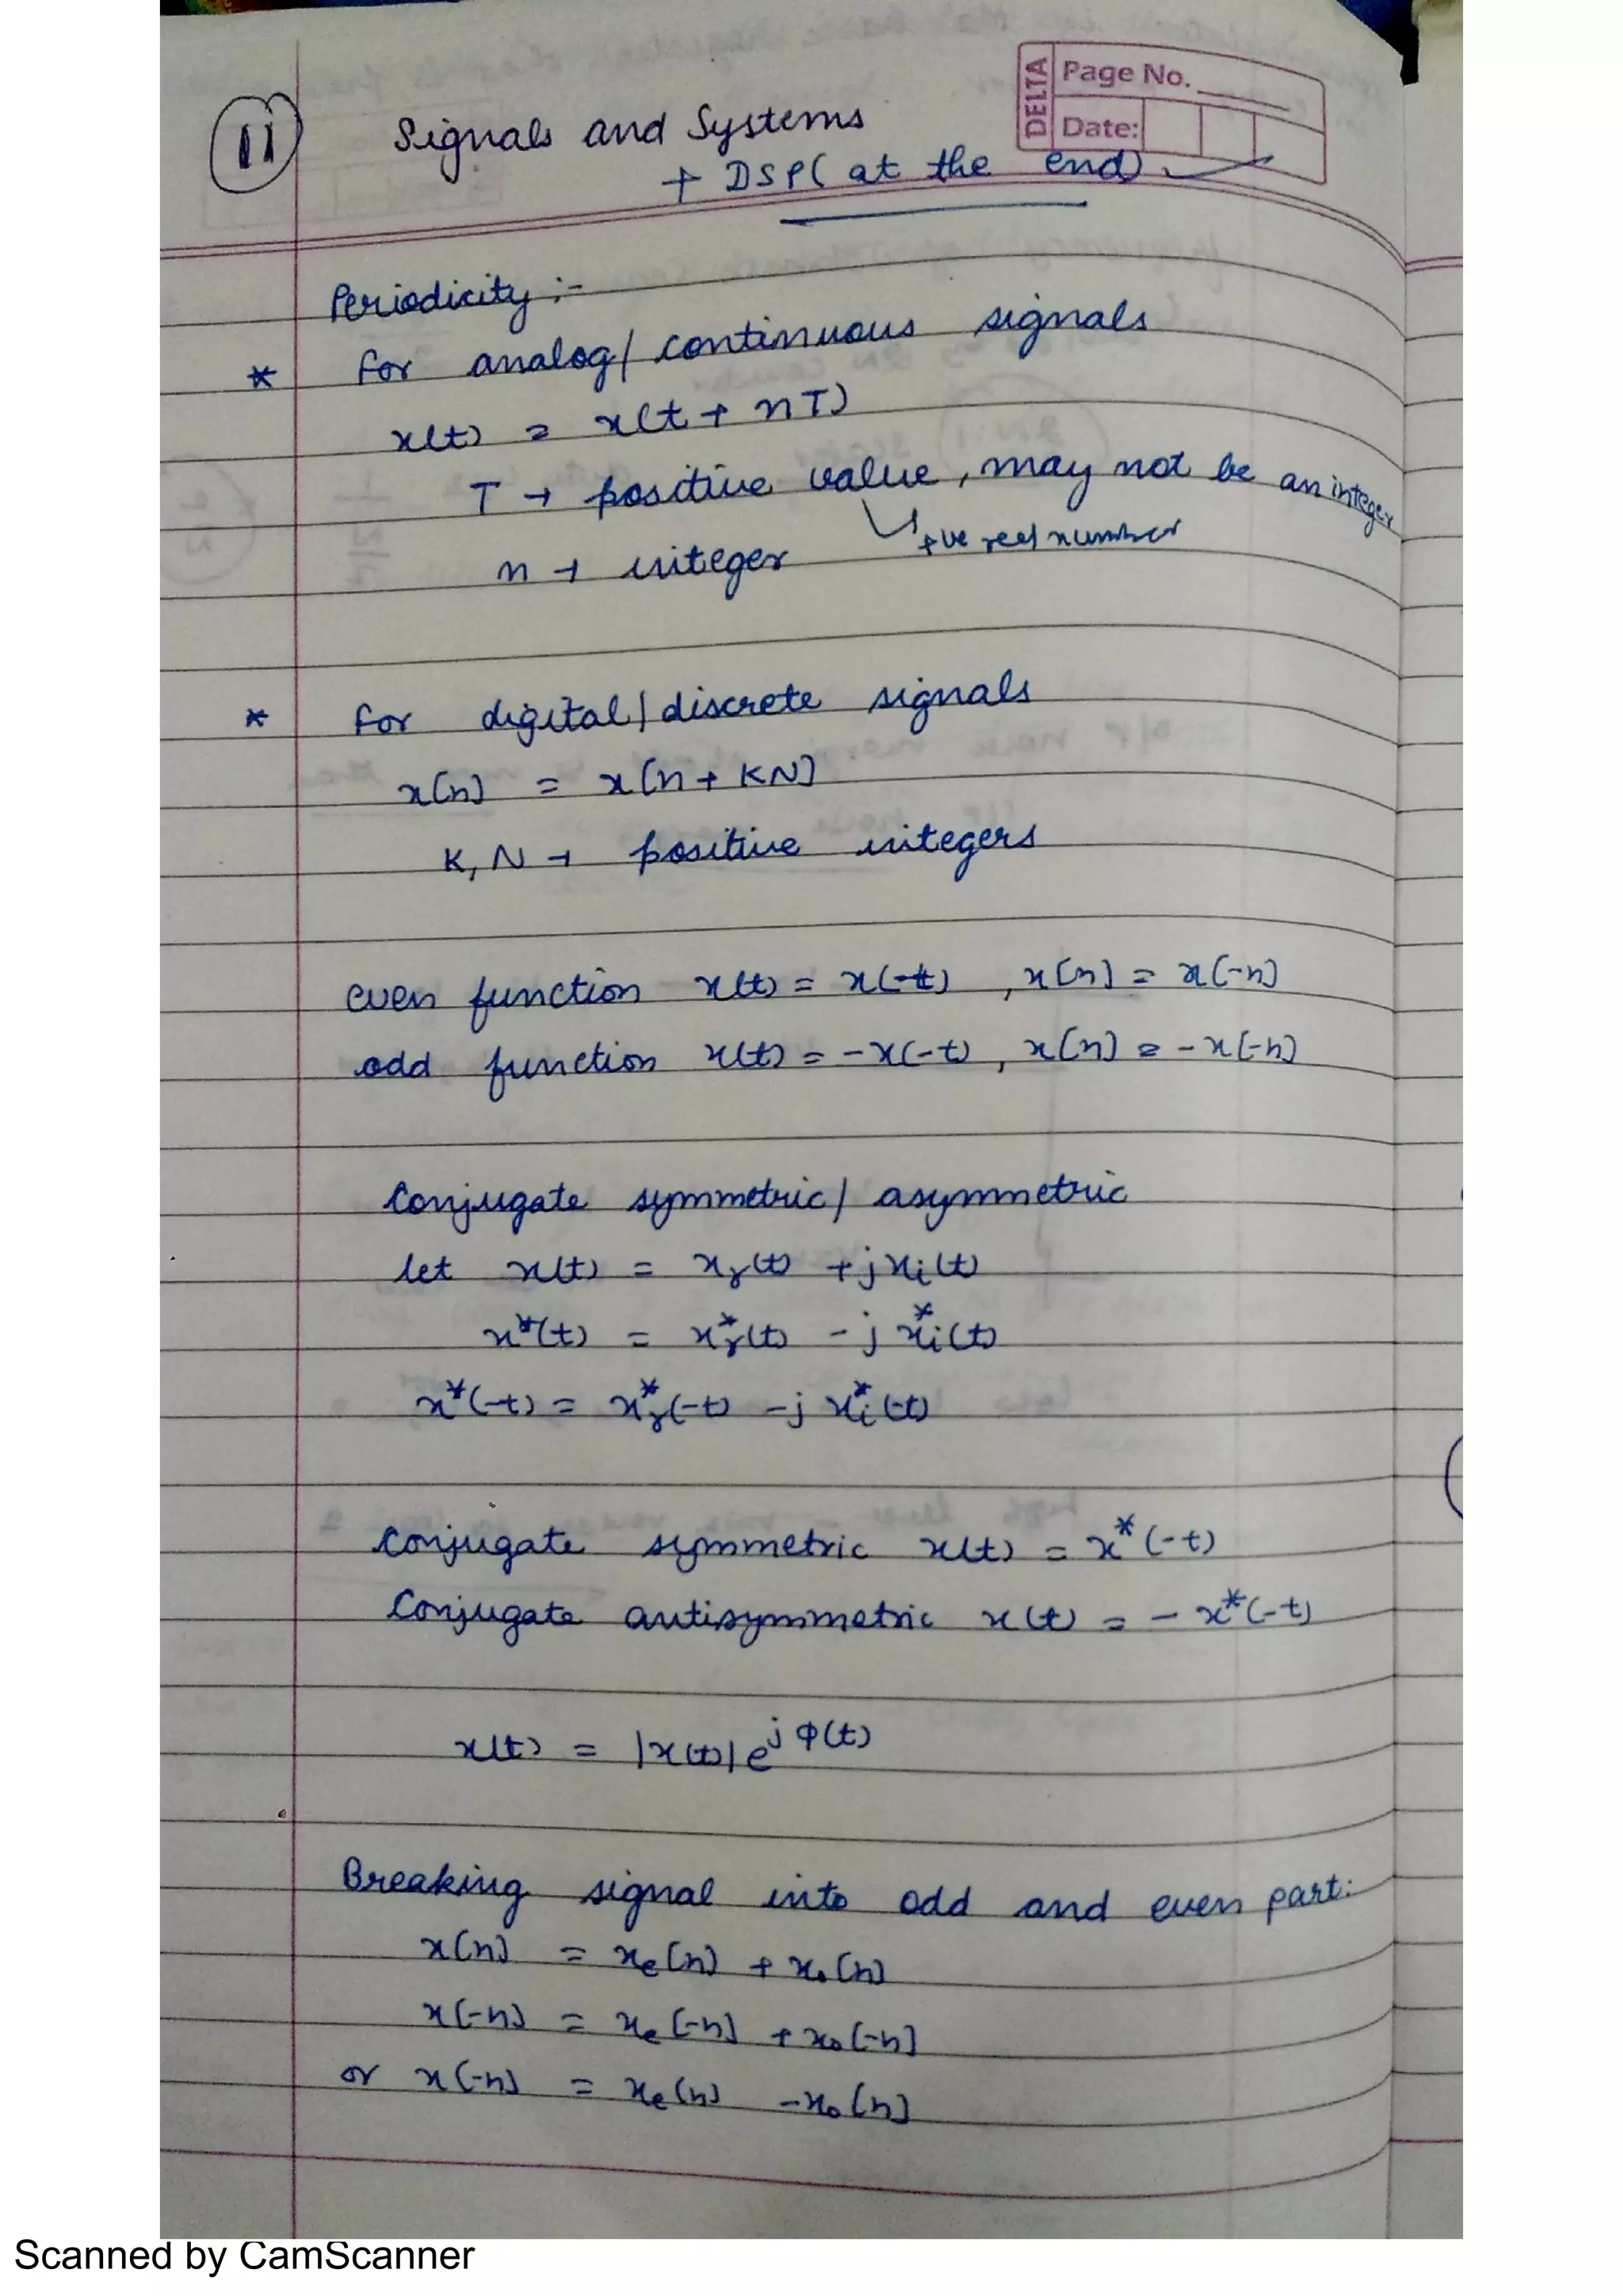 DELTA
Page No.
Date:
11
Signals and Systems
+ DSP( at the end)
Periodicity :-
* For analog/continuous signals
x(t) = x(t + nT)
T → positive value, may not be an integer
↳ +ve real number
n → integer
* For digital/discrete signals
x[n] = x[n + KN]
K, N → positive integers
even function x(t) = x(-t) , x[n] = x[-n]
odd function x(t) = -x(-t) , x[n] = -x[-n]
Conjugate symmetric/ asymmetric
let x(t) = xᵣ(t) + j xᵢ(t)
x*(t) = xᵣ*(t) - j xᵢ*(t)
x*(-t) = xᵣ*(-t) - j xᵢ*(-t)
Conjugate symmetric x(t) = x*(-t)
Conjugate antisymmetric x(t) = - x*(-t)
x(t) = |x(t)| e^jφ(t)
Breaking signal into odd and even part:
x[n] = xₑ[n] + x₀[n]
x[-n] = xₑ[-n] + x₀[-n]
or x[-n] = xₑ[n] - x₀[n]
Scanned by CamScanner